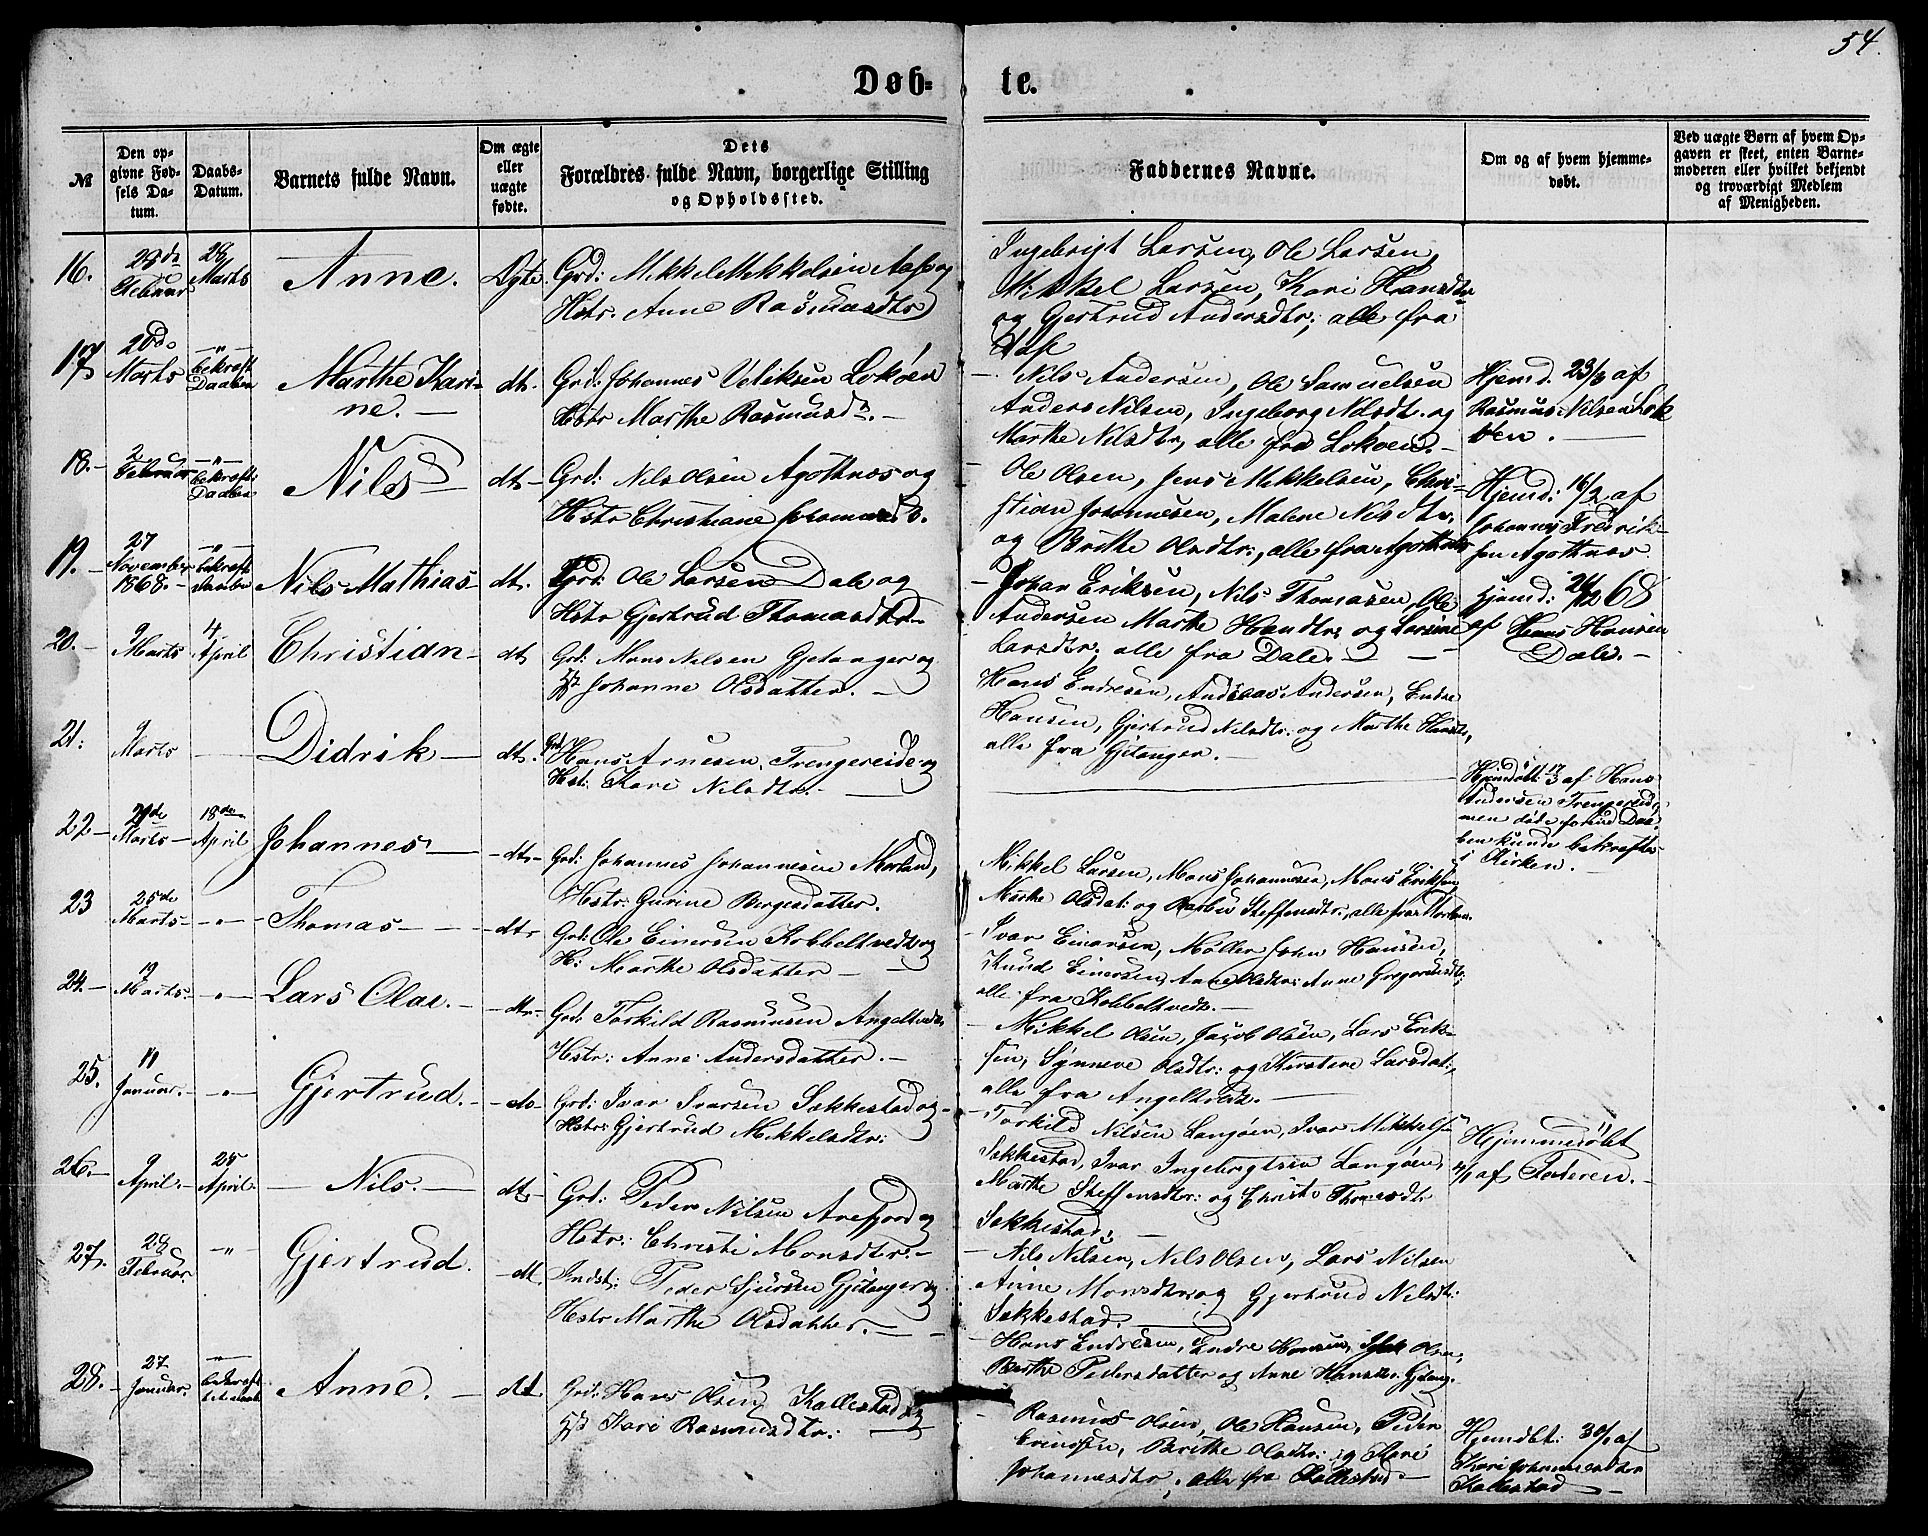 54.
Døb-
te.
№
Den op-
givne Fød-
sels Da-
tum.
Daabs-
Datum.
Barnets fulde Navn.
Om ægte
eller
uægte
fødte.
Dets
Forældres fulde Navn, borgerlige Stilling
og Opholdssted.
Faddernes Navne.
Om og af hvem hjemme-
døbt.
Ved uægte Børn af hvem Op-
gaven er skeet, enten Barne-
moderen eller hvilket bekjendt
og troværdigt Medlem
af Menigheden.
16.
28de
Februar
28
Marts
Anne.
Ægte
Grd: Mikkel Mikkelsen Aase og
Hstr. Anne Rasmusdtr
Ingebrigt Larsen, Ole Larsen,
Mikkel Larsen, Kari Hansdtr
og Gjertrud Andersdtr: alle fra
Aase
17
20de
Marts
bekræft.
Daaben
Marthe Kari-
ne. —
dt.
Grd: Johannes Lokøen
Hstr Marthe Rasmusdr. —
Nils Andersen, Ole Samuelsen
Anders Nilsen, Ingeborg Nilsdt. og
Marthe Nilsdtr, alle fra Lokøen. —
Hjemd. 23/3 af
Rasmus Nilsen Lok
øen. —
18. —
2
Februar
— " —
bekræft:
Daaben
Nils
dt —
Grd: Nils Olsen Agotnæs og
Hstr Christiane
Ole Olsen, Jens Mikkelsen, Chri-
stian Johannesen, Malene Nilsdtr.
og Brithe Olsdtr:, alle fra Agotnæs
Hjemd: 16/2 af
Johannes Fredrik-
sen Agottnæs
19. —
27
November
1868. —
— " —
bekræft.
Daaben
Nils Mathias
dt.
Grd: Ole Larsen Dale og
Hstr Gjertrud Thomasdtr —
Johan Eriksen, Nils Thomasen, Ole
Andersen Marthe Hansdtr og Larsine
Larsdtr; alle fra Dale. —
Hjemd: 68
af Hans Hansen
Dale. —
20. —
9
Marts
4
April
Christian —
dt
Grd: Mons Nilsen Gjetanger og
H. Johanne Olsdatter. —
Hans Endresen, Andreas Andersen, Endre
Hansen, Gjertrud Nilsdtr: og Marthe Hansdtr,
alle fra Gjetanger. —
21:
9
Marts
Didrik —
dt.
Grd: Hans Arnesen Trengereide og
Hst: Kari Nilsdtr. —
Hjemdøbt 17/3 af Hans
Andersen Trengereid,
men døde forind Daa-
ben kunde bekræftes
i Kirken.
22 —
21de
Marts —
18de
April
Johannes —
— dt —
Grd: Johannes Johannesen Morland,
Hstr: Gurine Børgesdatter.
Mikkel Larsen, Mons Johannesen, Mons Eriksen
Marthe Olsdat: og Barbro Steffensdtr:, alle fra Morland
23
25de
Marts —
— " —
Thomas —
— dt —
Grd: Ole Einersen Kobbeltvedt og
H: Marthe Olsdatter —
Ivar Einarsen, Møller John Hansen,
Knud Einersen, Anne Olsdtr: Anne Gregoriusdtr:
alle fra Kobbeltvedt. —
24. —
19
Marts —
— " —
Lars Olai. —
— dt —
Grd: Torkild Rasmusen Angeltvedt,
Hstr: Anne Andersdatter. —
— Mikkel Olsen, Jacob Olsen, Lars Erik-
sen, Synneve Olsdtr: og Kirstine Larsdat:,
alle fra Angeltvedt. —
25.
11
Januar. —
— " —
Gjertrud. —
— do —
Grd: Ivar Ivarsen Sækkestad og —
Hstr: Gjertrud Mikkelsdtr:
— Torkild Nilsen Langøen, Ivar Mikkelsen
Sækkestad, Ivar Ingebrigtsen Langøen,
Marthe Steffensdtr: og Christi Thomasdt
Sækkestad. —
Hjemmedøbt
af Faderen. —
26. —
9
April. —
25
April —
— Nils. —
dt —
Grd: Peder Nilsen Arefjord og
Hstr: Christi Monsdtr. —
— Nils Nilsen, Nils Olsen, Lars Nilsen
Anne Monsdtr og Gjertrud Nilsdt:
Sækkestad. —
27.
28
Februar
— " —
Gjertrud.
— dt
Indst: Peder Sjursen Gjetanger og
Hstr Marthe Olsdatter. —
— Hans Endresen, Endre Hansen, Olsen,
Brithe Pedersdatter og Anne Hansdtr. Gjetang.
28. —
27
Januar.
— " —
bekræft.
Anne. —
dt.
Grd: Hans Olsen Kallestad og
H. Kari Rasmusdtr: —
— Rasmus Olsen, Ole Hansen, Peder
Brithe Olsdtr: og Kari
Johannesdtr, alle fra Kallestad —
Hjemdbt: 30/1 af
Kari Johannesdtr
Kallestad —